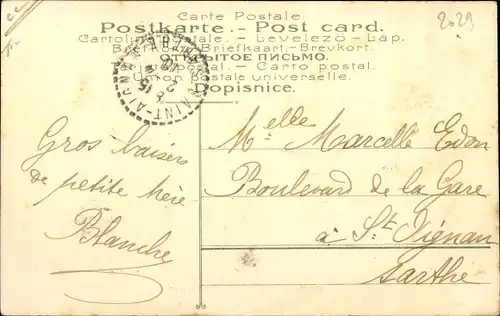 Carte Postale
Postkarte. - Post card.
Cartolina postale. - Levelező - Lap.
Briefkort - Briefkaart. - Brevkort.
ОТКРЫТОЕ ПИСЬМО.
postal. - Carto postal.
Union postale universelle.
Dopisnice.
2029
Gros baisers
de petite
Blanche
Melle Marcelle Edon
Boulevard de la Gare
à St.
Sarthe